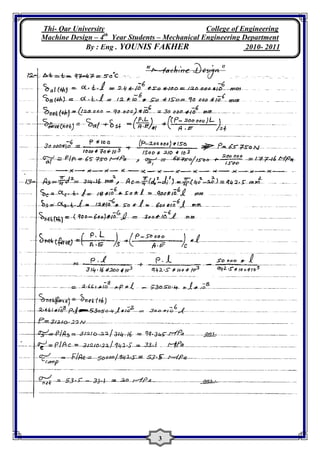 Thi- Qar University College of Engineering
Machine Design – 4th Year Students – Mechanical Engineering Department
By : Eng . YOUNIS FAKHER 2010- 2011
"Machine Design"
12- Δt = t = 97-47 = 50°C
δal(th) = α.t.l = 24*10^-6 * 50*100 = 120 000*10^-6 mm
δst(th) = α.t.l = 12*10^-6 * 50*150 = 90 000*10^-6 mm
δnet(th) = (120 000 - 90 000)*10^-6 = 30 000*10^-6 mm
δnet(net) = δal + δst = (P.L / A.E)al + ((P-200000)L / A.E)st
30 000*10^-6 = P*100 / 1000*70*10^3 + (P-200000)*150 / 1500*210*10^3 ⇒ P = 65 750 N
= P/A = 65 750 MPa,
13- As = π/4 d² = 314.16 mm², Ac = π/4 (d²-d²) = π/4 (40²-20²) = 942.5 mm²
δc = αc.t.l = 18*10^-6 * 50*l = 900*10^-6 l mm
δs = αs.t.l = 12*10^-6 * 50*l = 600*10^-6 l mm
δnet(th) = (900-600)*10^-6 l = 300*10^-6 l mm
δnet(force) = (P.L / A.E)s + ((P-50000) / A.E)c * l
= P.l / 314.16*200*10^3 + P.l / 942.5*100*10^3 - 50000*l / 942.5*100*10^3
= 2.661*10^-8 *P*l - 53050.4*l*10^-8
δnet(force) = δnet(th)
2.661*10^-8 P.l - 53050.4*l*10^-8 = 300*10^-6 l
P = 31210.22 N
σs = P/As = 31210.22/314.16 = 99.345 MPa ans.
σc = P/Ac = 31210.22/942.5 = 33.1 MPa
σcomp = F/Ac = 50000/942.5 = 53.5 MPa
σnet = 53.5 - 33.1 = 20 MPa ans.
3